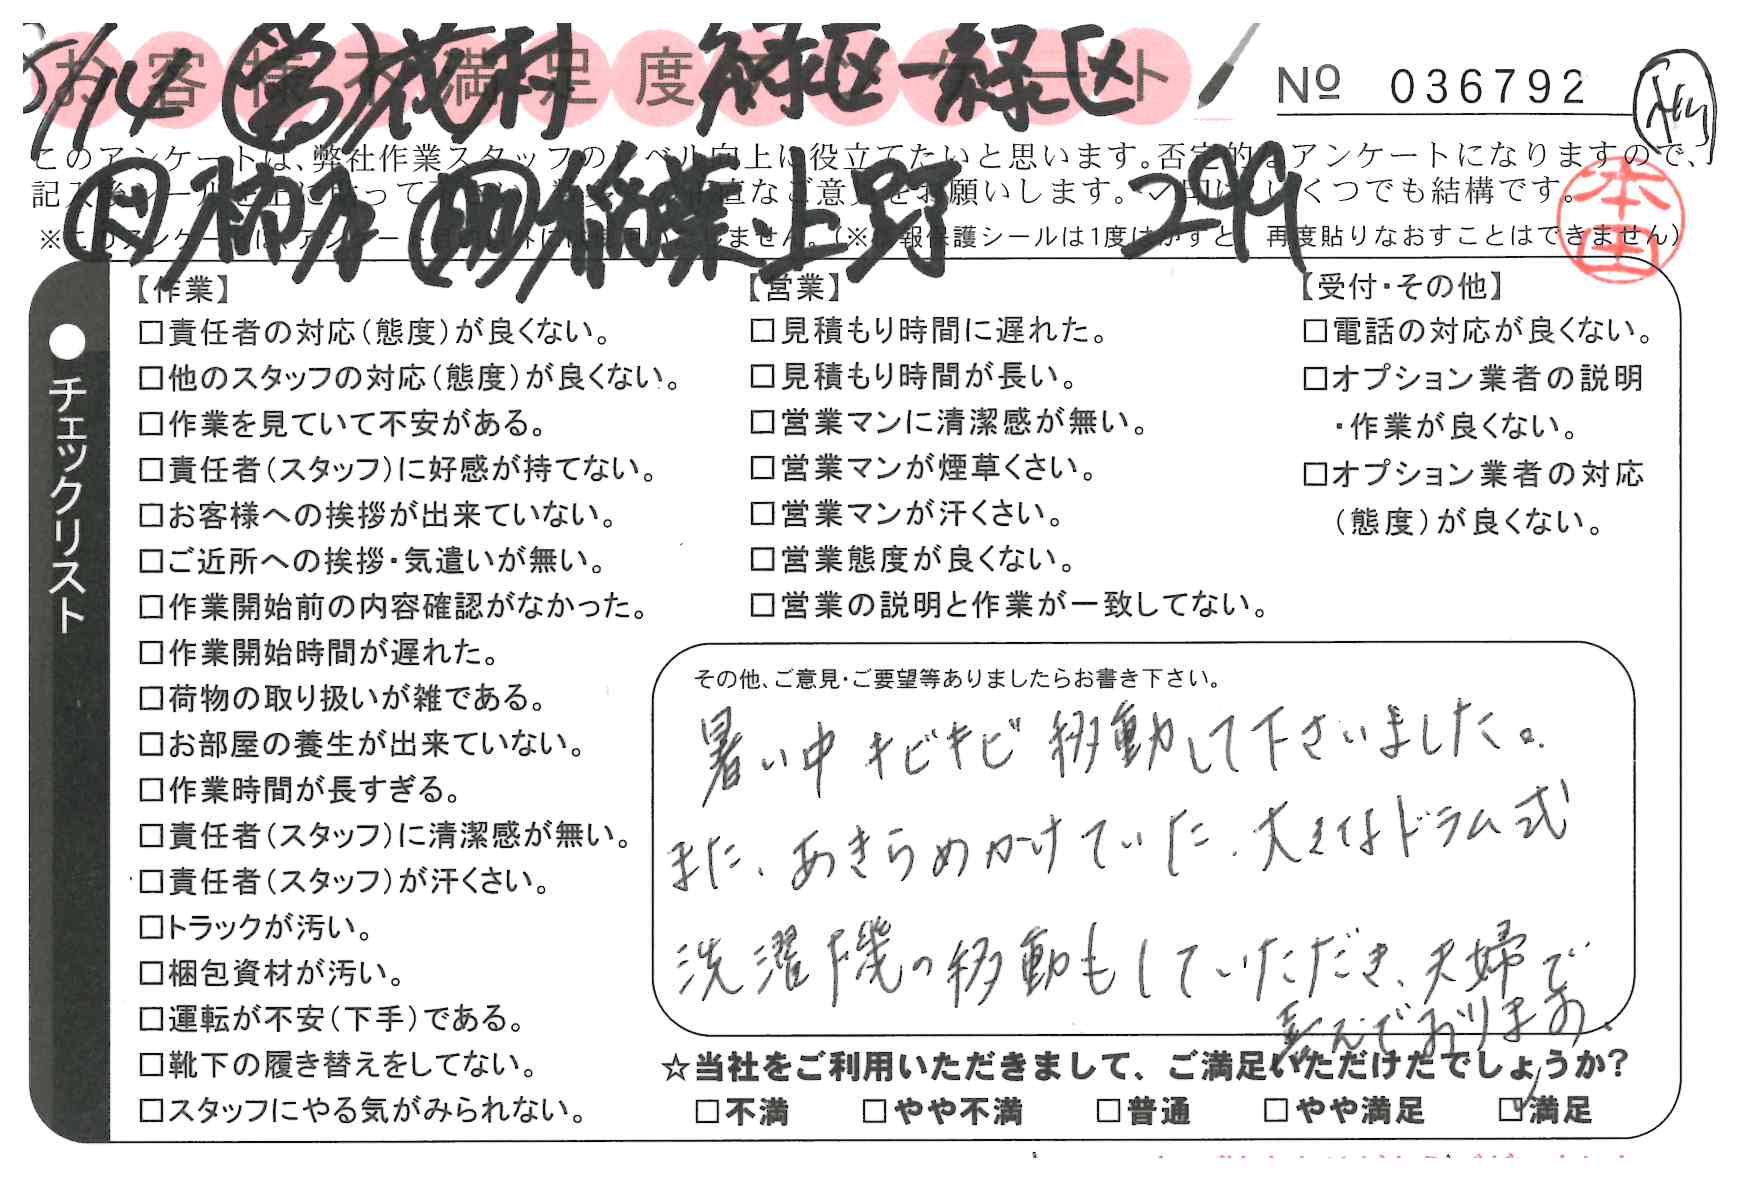 お客様不満足度アンケート
8/14 営 茂村 緑区→緑区
№ 036792
このアンケートは、弊社作業スタッフのレベル向上に役立てたいと思います。否定的なアンケートになりますので、
記入後シールを上に貼って 直なご意見をお願いします。✓印はいくつでも結構です。
助 稲葉 上野 299
本田
※このアンケートは、アンケート 外には使用いたしません。(※ 報保護シールは1度はがすと、再度貼りなおすことはできません)
●チェックリスト
【作業】
□責任者の対応(態度)が良くない。
□他のスタッフの対応(態度)が良くない。
□作業を見ていて不安がある。
□責任者(スタッフ)に好感が持てない。
□お客様への挨拶が出来ていない。
□ご近所への挨拶・気遣いが無い。
□作業開始前の内容確認がなかった。
□作業開始時間が遅れた。
□荷物の取り扱いが雑である。
□お部屋の養生が出来ていない。
□作業時間が長すぎる。
□責任者(スタッフ)に清潔感が無い。
□責任者(スタッフ)が汗くさい。
□トラックが汚い。
□梱包資材が汚い。
□運転が不安(下手)である。
□靴下の履き替えをしてない。
□スタッフにやる気がみられない。
【営業】
□見積もり時間に遅れた。
□見積もり時間が長い。
□営業マンに清潔感が無い。
□営業マンが煙草くさい。
□営業マンが汗くさい。
□営業態度が良くない。
□営業の説明と作業が一致してない。
【受付・その他】
□電話の対応が良くない。
□オプション業者の説明
・作業が良くない。
□オプション業者の対応
(態度)が良くない。
その他、ご意見・ご要望等ありましたらお書き下さい。
暑い中キビキビ移動して下さいました。
また、あきらめかけていた、大きなドラム式
洗濯機の移動もしていただき、夫婦で
喜んでおります。
☆当社をご利用いただきまして、ご満足いただけたでしょうか?
□不満 □やや不満 □普通 □やや満足 ☑満足